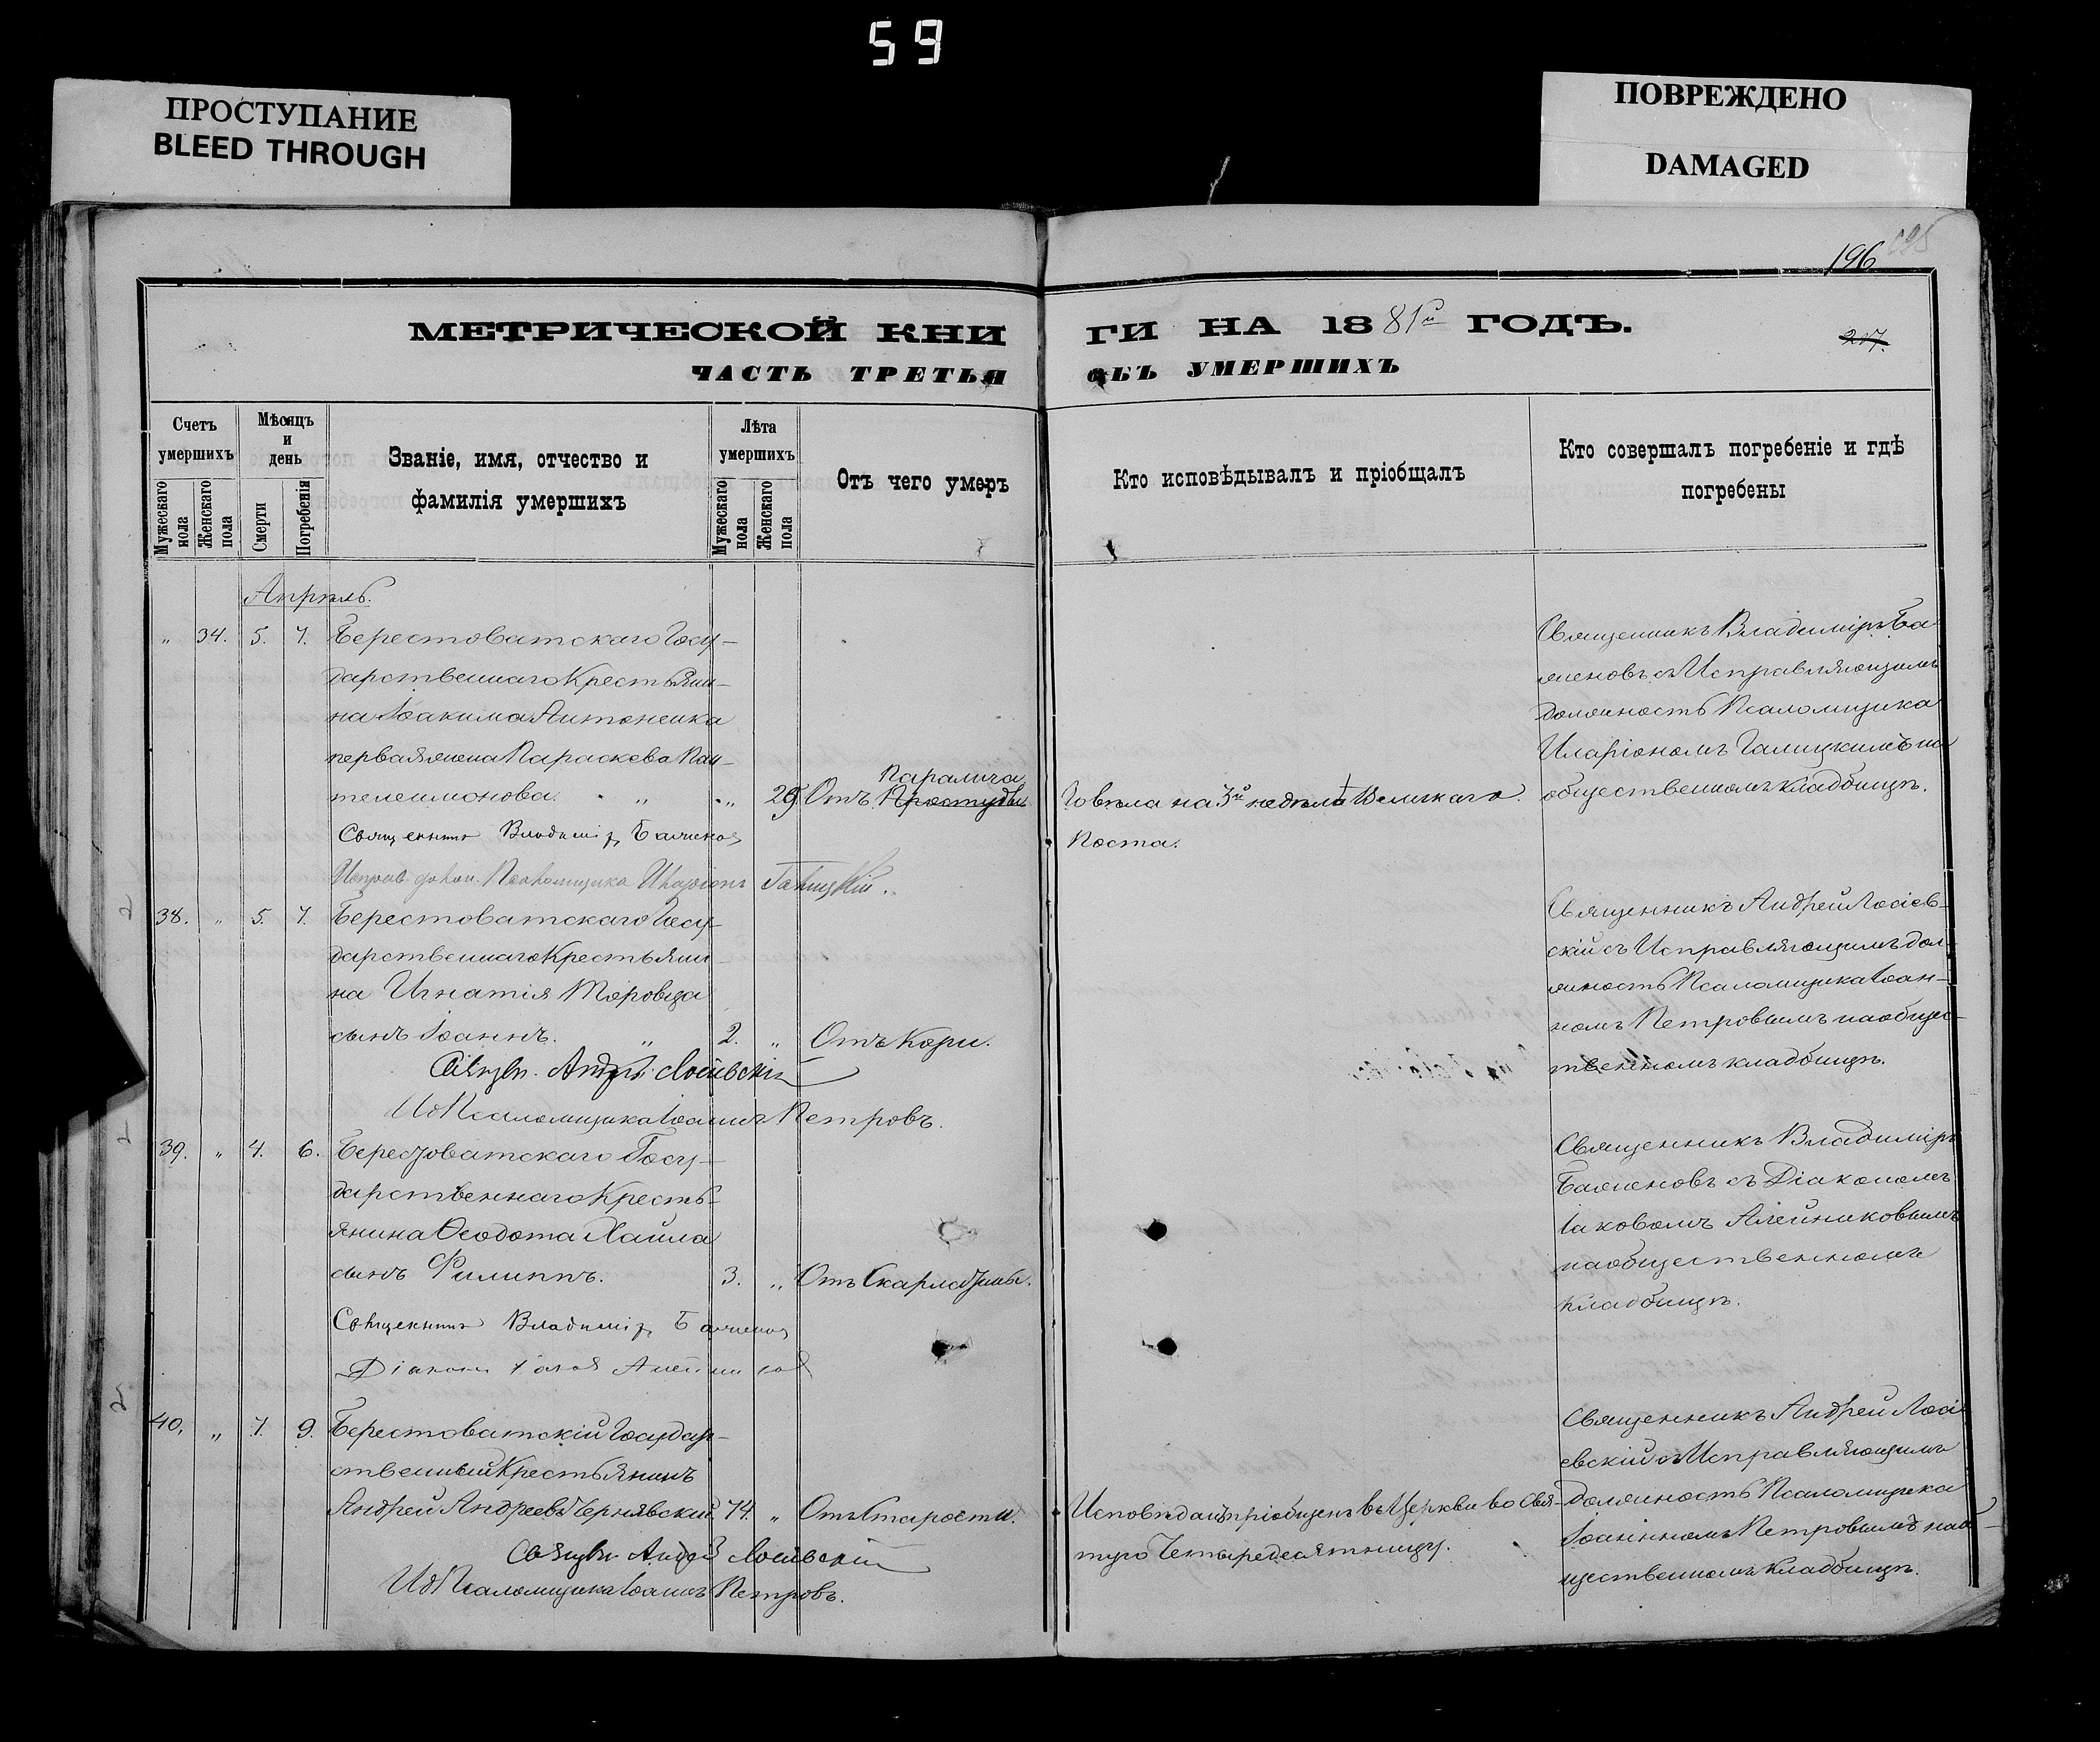 59
ПРОСТУПАНИЕ
BLEED THROUGH
ПОВРЕЖДЕНО
DAMAGED
196
195
МЕТРИЧЕСКОЙ КНИ
ГИ НА 1881й ГОДЪ.
217.
ЧАСТЬ ТРЕТЬЯ
ОБЪ УМЕРШИХЪ
Счетъ умершихъ
Мужескаго пола
Женскаго пола
Мѣсяцъ и день
Смерти
Погребенія
Званіе, имя, отчество и
фамилія умершихъ
Лѣта умершихъ
Мужескаго пола
Женскаго пола
Отъ чего умеръ
Кто исповѣдывалъ и пріобщалъ
Кто совершалъ погребеніе и гдѣ
погребены
Апрѣль.
„ 34. 5. 7. Берестоватскаго Госу-
дарственнаго Крестьяни-
на Іоакима Антоненка
первая жена Параскева Пан-
телеимонова. „ „ 29 Отъ Простуды Паралича
Священникъ Владиміръ Баженовъ
Исправ. долж. Псаломщика Иларіонъ Галицкій.
Говѣла на 3й недѣлѣ Великаго
Поста.
Священникъ Владиміръ Ба
женовъ съ Исправляющимъ
должность Псаломщика
Иларіономъ Галицкимъ на
общественномъ кладбищѣ.
38. „ 5. 7. Берестоватскаго Госу-
дарственнаго Крестьяни-
на Игнатія
сынъ Іоаннъ. „ 2. „ Отъ Кори.
Священ. Андрей Лосіевскій
ИД Псаломщика Іоаннъ Петровъ.
Священникъ Андрей Лосіев-
скій съ Исправляющимъ дол-
жность Псаломщика Іоан-
номъ Петровымъ на общес-
твенномъ кладбищѣ.
39. „ 4. 6. Берестоватскаго Госу-
дарственнаго Кресть-
янина Ѳеодота Хаила
сынъ Филиппъ. 3. „ Отъ Скарлатины.
Священникъ Владиміръ Баженовъ
Діаконъ Іаковъ Алейниковъ
Священникъ Владиміръ
Баженовъ съ Діакономъ
Іаковомъ Алейниковымъ
на общественномъ
кладбищѣ.
40. „ 7. 9. Берестоватскій Государ-
ственный Крестьянинъ
Андрей Андреевъ Чернявскій 74. „ Отъ Старости.
Священ. Андрей Лосіевскій
ИД Псаломщика Іоаннъ Петровъ.
Исповѣданъ и пріобщенъ въ Церкви во Свя-
тую Четыредесятницу.
Священникъ Андрей Лосі
евскій съ Исправляющимъ
должность Псаломщика
Іоанномъ Петровымъ на об-
щественномъ кладбищѣ.